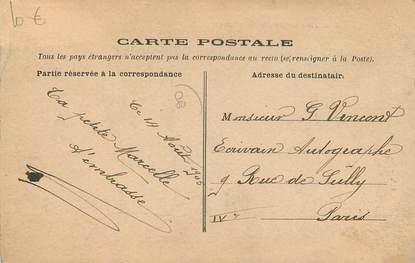 10 €
CARTE POSTALE
Tous les pays étrangers n'acceptent pas la correspondance au recto (se renseigner à la Poste).
Partie réservée à la correspondance
Adresse du destinatair.
06
Le 14 Août 1906
Ta petite Marcelle
t'embrasse
Monsieur G Vincent
Ecrivain Autographe
9 Rue de Sully
IVe Paris